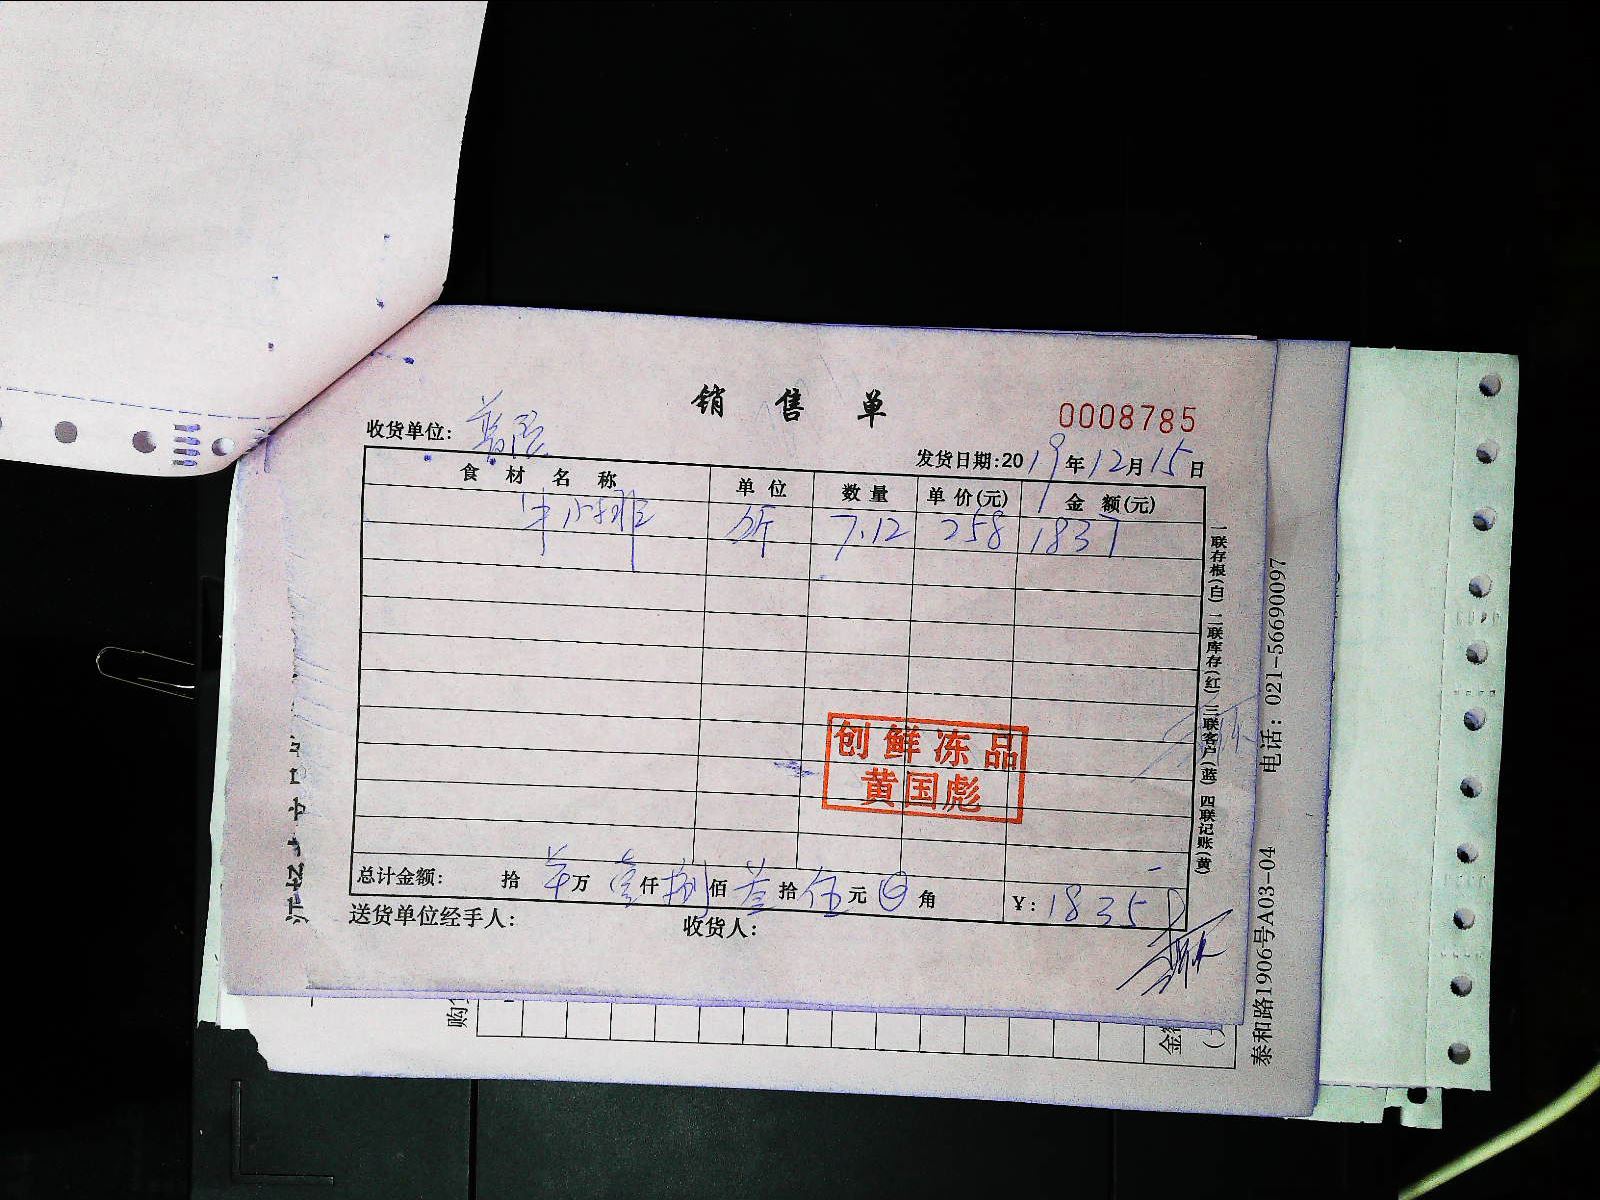 销售单
0008785
收货单位:
发货日期:2019年12月15日
食材名称 单位 数量 单价(元) 金额(元)
牛小排 斤 7.12 258 1837
创鲜冻品
黄国彪
总计金额: 拾 万 壹仟捌佰叁拾伍元 角 ¥:1835
送货单位经手人: 收货人:
一联存根(白) 二联库存(红) 三联客户(蓝) 四联记账(黄)
泰和路1906号A03-04 电话:021-56690097
购
金